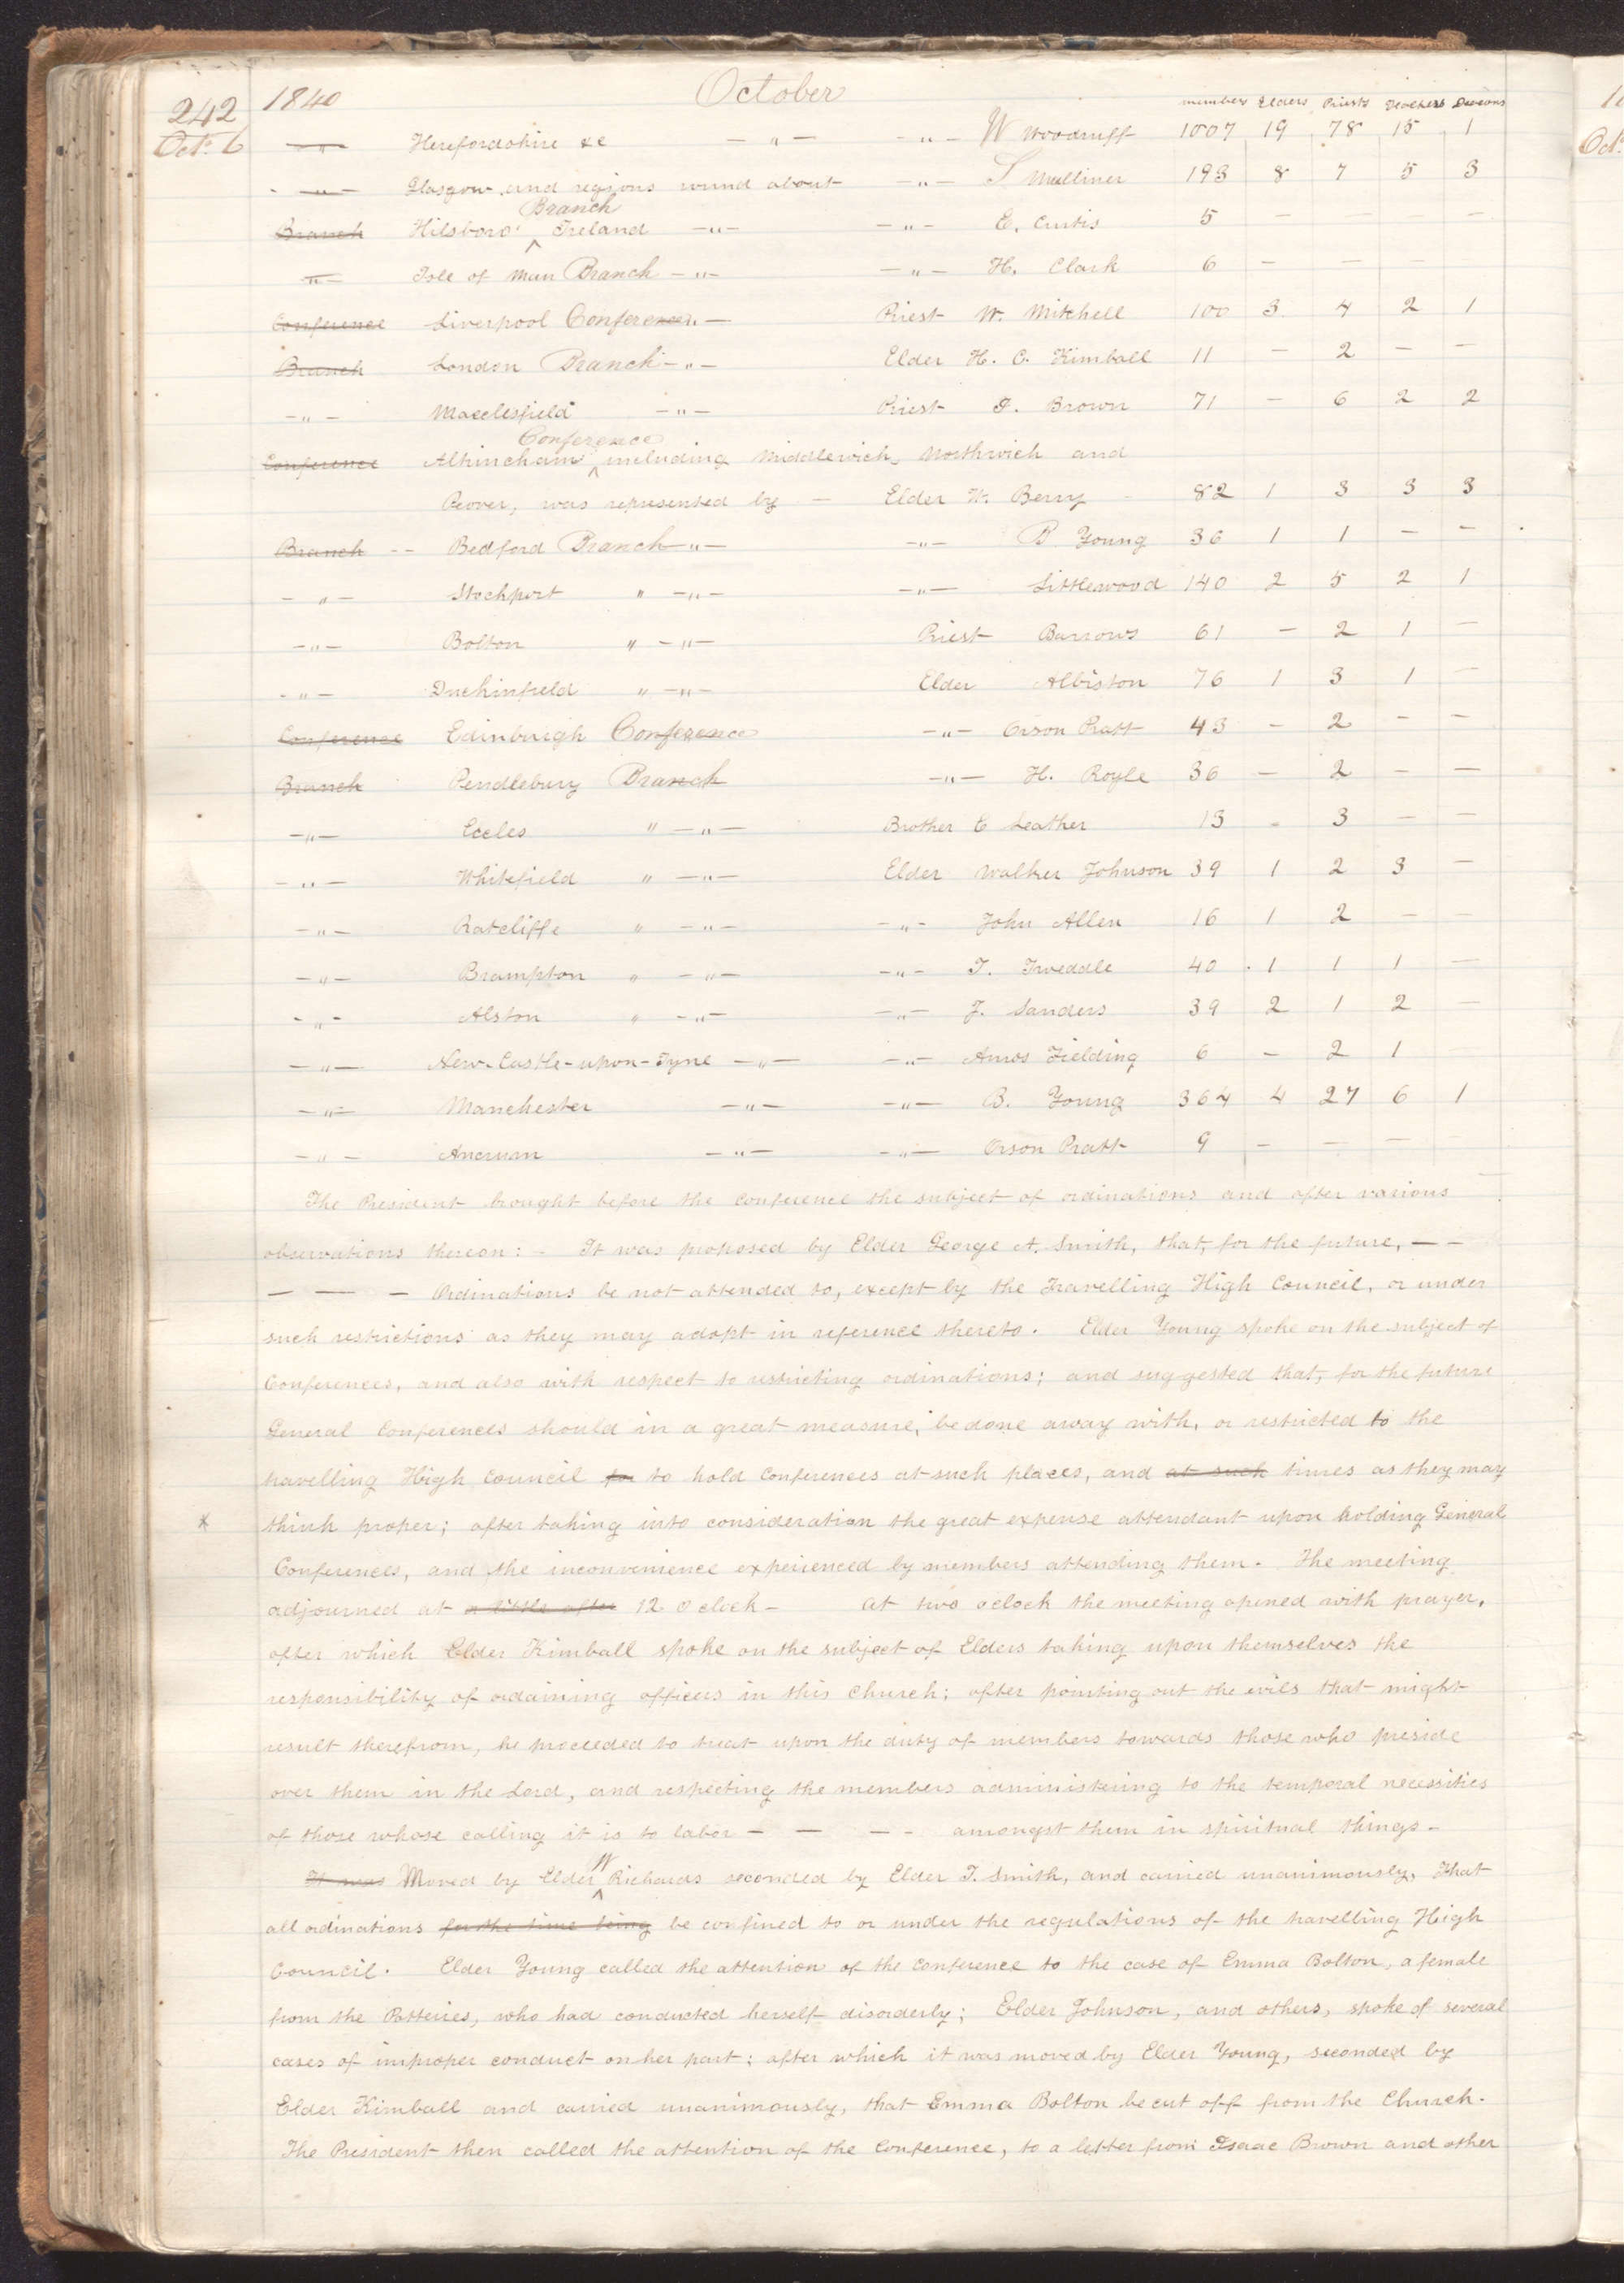 242 1840 October members Elders Priests Teachers Deacons
Oct. 6 — " — Herefordshire &c — " — — " — W Woodruff 1007 19 78 15 1
— " — Glasgow and regions round about — " — S Mulliner 193 8 7 5 3
Branch
Branch Hilsboro' ^ Ireland — " — — " — C. Curtis 5 — — —
— " — Isle of Man Branch — " — — " — H. Clark 6 — — —
Conference Liverpool Conference " — Priest W. Mitchell 100 3 4 2 1
Branch London Branch — " — Elder H. C. Kimball 11 — 2 — —
— " — Macclesfield — " — Priest J. Brown 71 — 6 2 2
Conference
Conference Altrincham ^ including Middlewich, Northwich and
Peover, was represented by — Elder W. Berry 82 1 3 3 3
Branch -- Bedford Branch — " — — " — B Young 36 1 1 — —
— " — Stockport " — " — — " — Littlewood 140 2 5 2 1
— " — Bolton " — " — Priest Barrows 61 — 2 1 —
— " — Duckinfield " — " — Elder Albiston 76 1 3 1 —
Conference Edinburgh Conference — " — Orson Pratt 43 — 2 — —
Branch Pendlebury Branch — " — H. Royle 36 — 2 — —
— " — Eccles " — " — Brother C Leather 13 - 3 — —
— " — Whitefield " — " — Elder Walker Johnson 39 1 2 3 —
— " — Ratcliffe " — " — — " — John Allen 16 1 2 — —
— " — Brampton " — " — — " — J. Tweddle 40 1 1 1 —
— " — Alston " — " — — " — J. Sanders 39 2 1 2 —
— " — New-Castle-upon-Tyne — " — — " — Amos Fielding 6 — 2 1 —
— " — Manchester — " — — " — B. Young 364 4 27 6 1
— " — Ancrum — " — — " — Orson Pratt 9 — — — —
The President brought before the conference the subject of ordinations and after various
observations thereon: - It was proposed by Elder George A. Smith, that, for the future, — —
— — — Ordinations be not attended to, except by the Travelling High Council, or under
such restrictions as they may adopt in reference thereto. Elder Young spoke on the subject of
Conferences, and also with respect to restricting ordinations; and suggested that, for the future
General Conferences should in a great measure, be done away with, or restricted to the
travelling High Council for to hold Conferences at such places, and at such times as they may
x think proper; after taking into consideration the great expense attendant upon holding General
Conferences, and the inconvenience experienced by members attending them. The meeting
adjourned at a little after 12 o clock — At two oclock the meeting opened with prayer,
after which Elder Kimball spoke on the subject of Elders taking upon themselves the
responsibility of ordaining officers in this Church; after pointing out the evils that might
result therefrom, he proceeded to treat upon the duty of members towards those who preside
over them in the Lord, and respecting the members administering to the temporal necessities
of those whose calling it is to labor — — — - amongst them in spiritual things —
W
It was Moved by Elder ^ Richards seconded by Elder T. Smith, and carried unanimously, That
all ordinations for the time being be confined to or under the regulations of the travelling High
Council. Elder Young called the attention of the Conference to the case of Emma Bolton, a female
from the Potteries, who had conducted herself disorderly; Elder Johnson, and others, spoke of several
cases of improper conduct on her part; after which it was moved by Elder Young, seconded by
Elder Kimball and carried unanimously, that Emma Bolton be cut off from the Church.
The President then called the attention of the Conference, to a letter from Isaac Brown and other